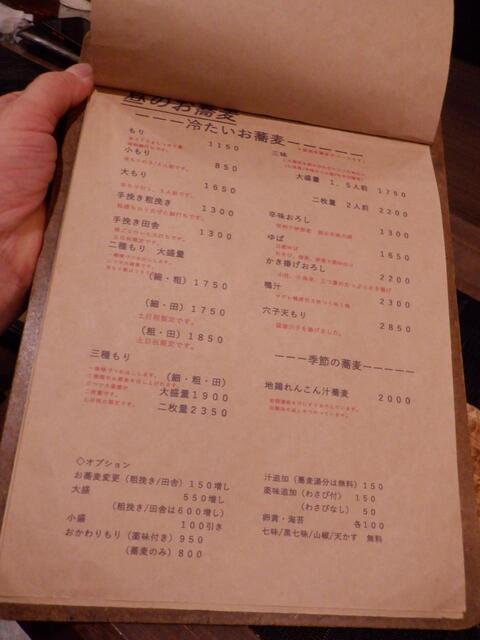 昼のお蕎麦
ーーー冷たいお蕎麦ーーーーー
もり 1150
小もり 850
大もり 1650
手挽き粗挽き 1300
手挽き田舎 1300
土日祝限定です。
二種もり 大盛量
(細・粗) 1750
(細・田) 1750
土日祝限定です。
(粗・田) 1850
土日祝限定です。
三種もり
(細・粗・田)
大盛量1900
二枚量2350
三味
大盛量 1.5人前 1750
二枚量 2人前 2200
辛味おろし 1300
ゆば 1650
かき揚げおろし 2200
鴨汁 2300
穴子天もり 2850
ーーー季節の蕎麦ーーーーー
地鶏れんこん汁蕎麦 2000
◇オプション
お蕎麦変更(粗挽き/田舎) 150増し
大盛 550増し
(粗挽き/田舎は600増し)
小盛 100引き
おかわりもり (薬味付き) 950
(蕎麦のみ) 800
汁追加 (蕎麦湯分は無料) 150
薬味追加 (わさび付) 150
(わさびなし) 50
卵黄・海苔 各100
七味/黒七味/山椒/天かす 無料